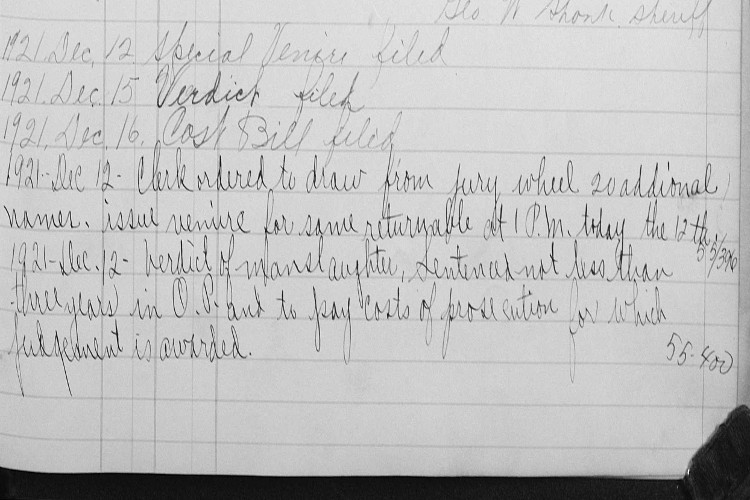 Geo W Shonk, Sheriff
1921. Dec. 12 Special Venire filed
1921. Dec. 15 Verdict filed
1921. Dec. 16. Cost Bill filed
1921-Dec 12- Clerk ordered to draw from jury wheel 20 addional
names. issue venire for same returnable at 1 P.M. today the 12th.
1921-Dec. 12- Verdict of manslaughter, sentenced not less than
55/390
three years in O.P. and to pay costs of prosecution for which
judgement is awarded.
55-400